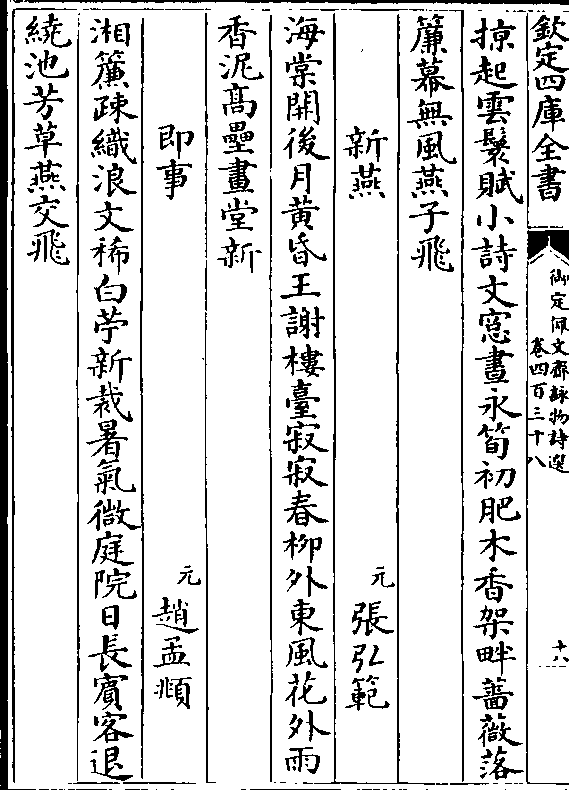 欽定四庫全書
御定佩文齋詠物詩選
卷四百三十八
十八
掠起雲鬟賦小詩文窓晝永筍初肥木香架畔薔薇落
簾幕無風燕子飛
新燕
元
張弘範
海棠開後月黄昏王謝樓臺寂寂春柳外東風花外雨
香泥髙壘畫堂新
即事
元
趙孟頫
湘簾疎織浪文稀白苧新裁暑氣微庭院日長賓客退
繞池芳草燕交飛